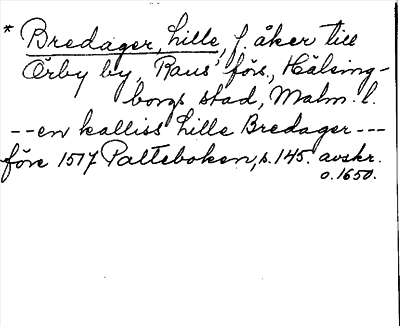 * Bredager, Lille, f. åker till
Örby by, Raus' förs., Hälsing-
borgs stad, Malm. l.
--en kalliss Lille Bredager---
före 1517 Palteboken, s. 145. avskr.
o. 1650.